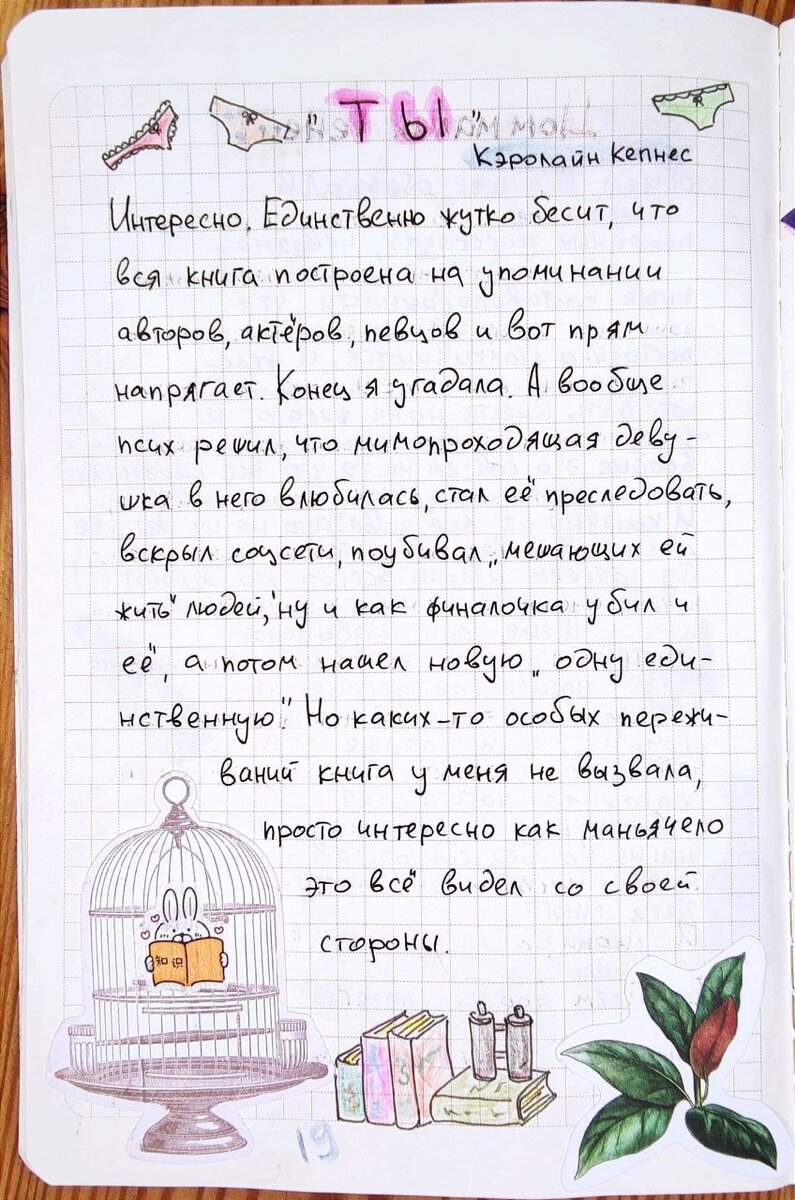 ТЫ
Кэролайн Кепнес
Интересно. Единственно жутко бесит, что
вся книга построена на упоминании
авторов, актёров, певцов и вот прям
напрягает. Конец я угадала. А вообще
псих решил, что мимопроходящая деву-
шка в него влюбилась, стал её преследовать,
вскрыл соцсети, поубивал „мешающих ей
жить" людей, ну и как финалочка убил и
её, а потом нашел новую „одну еди-
нственную". Но каких-то особых пережи-
ваний книга у меня не вызвала,
просто интересно как маньячело
это всё видел со своей
стороны.
知识
19